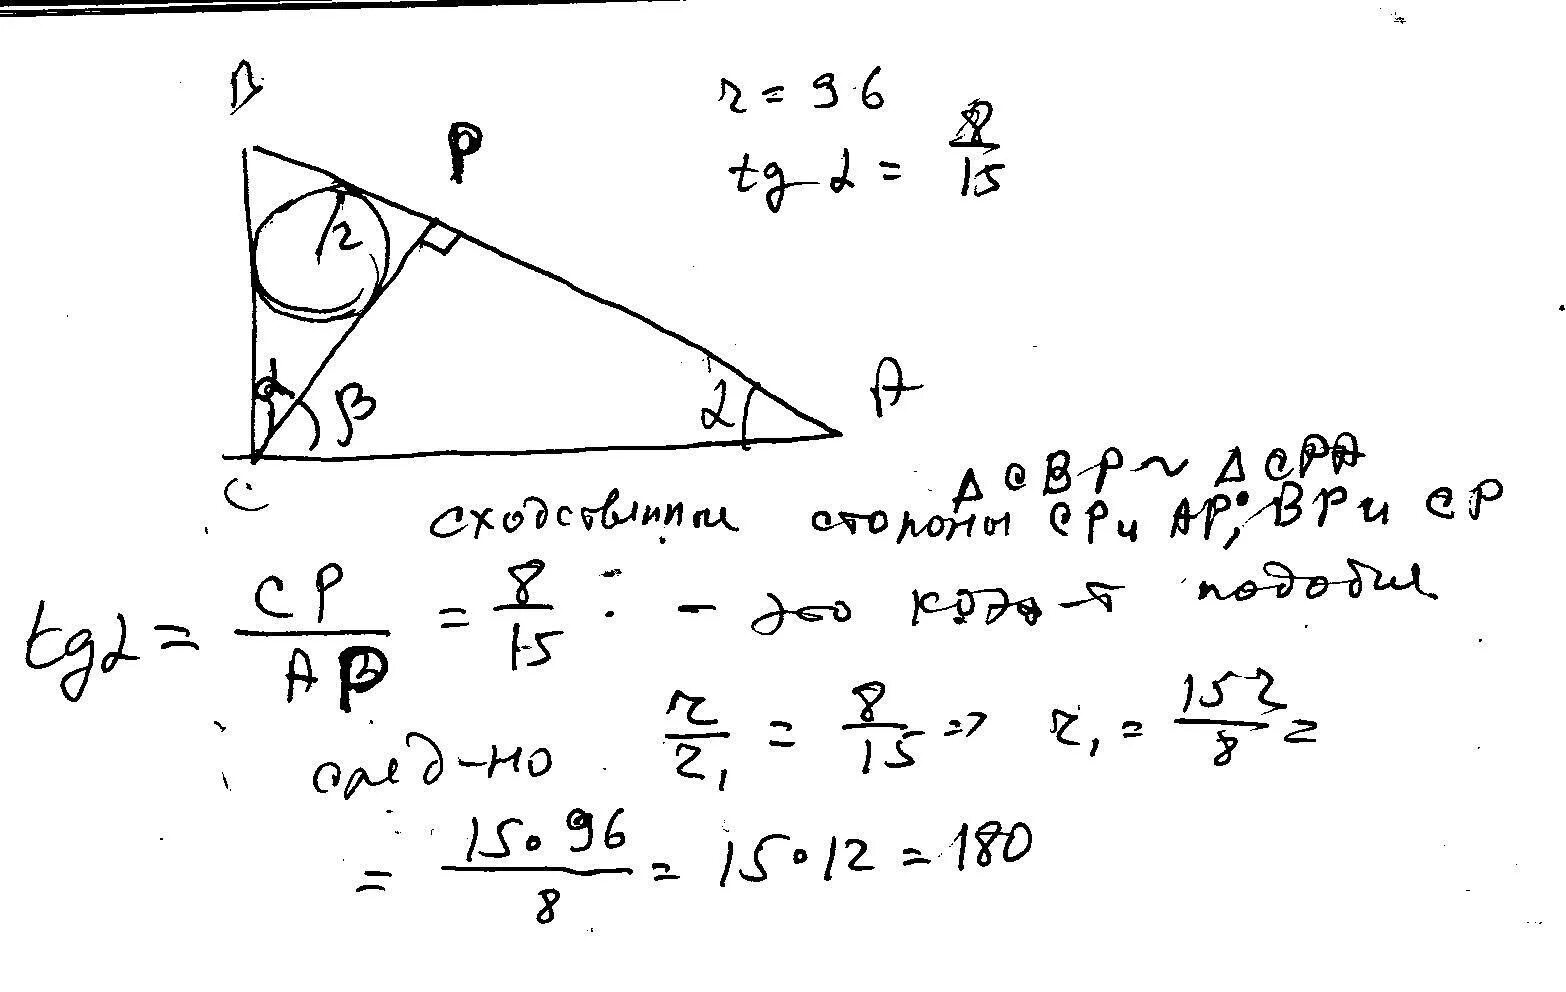 B
P
r = 96
tg α = 8/15
r
α
β
α
A
C
Δ CBP ~ Δ CPA
сходственные стороны CP и AP; BP и CP
tg α = CP/AP = 8/15 - это коэф-т подобия
след-но r/r₁ = 8/15 => r₁ = 15r/8 =
= 15·96/8 = 15·12 = 180